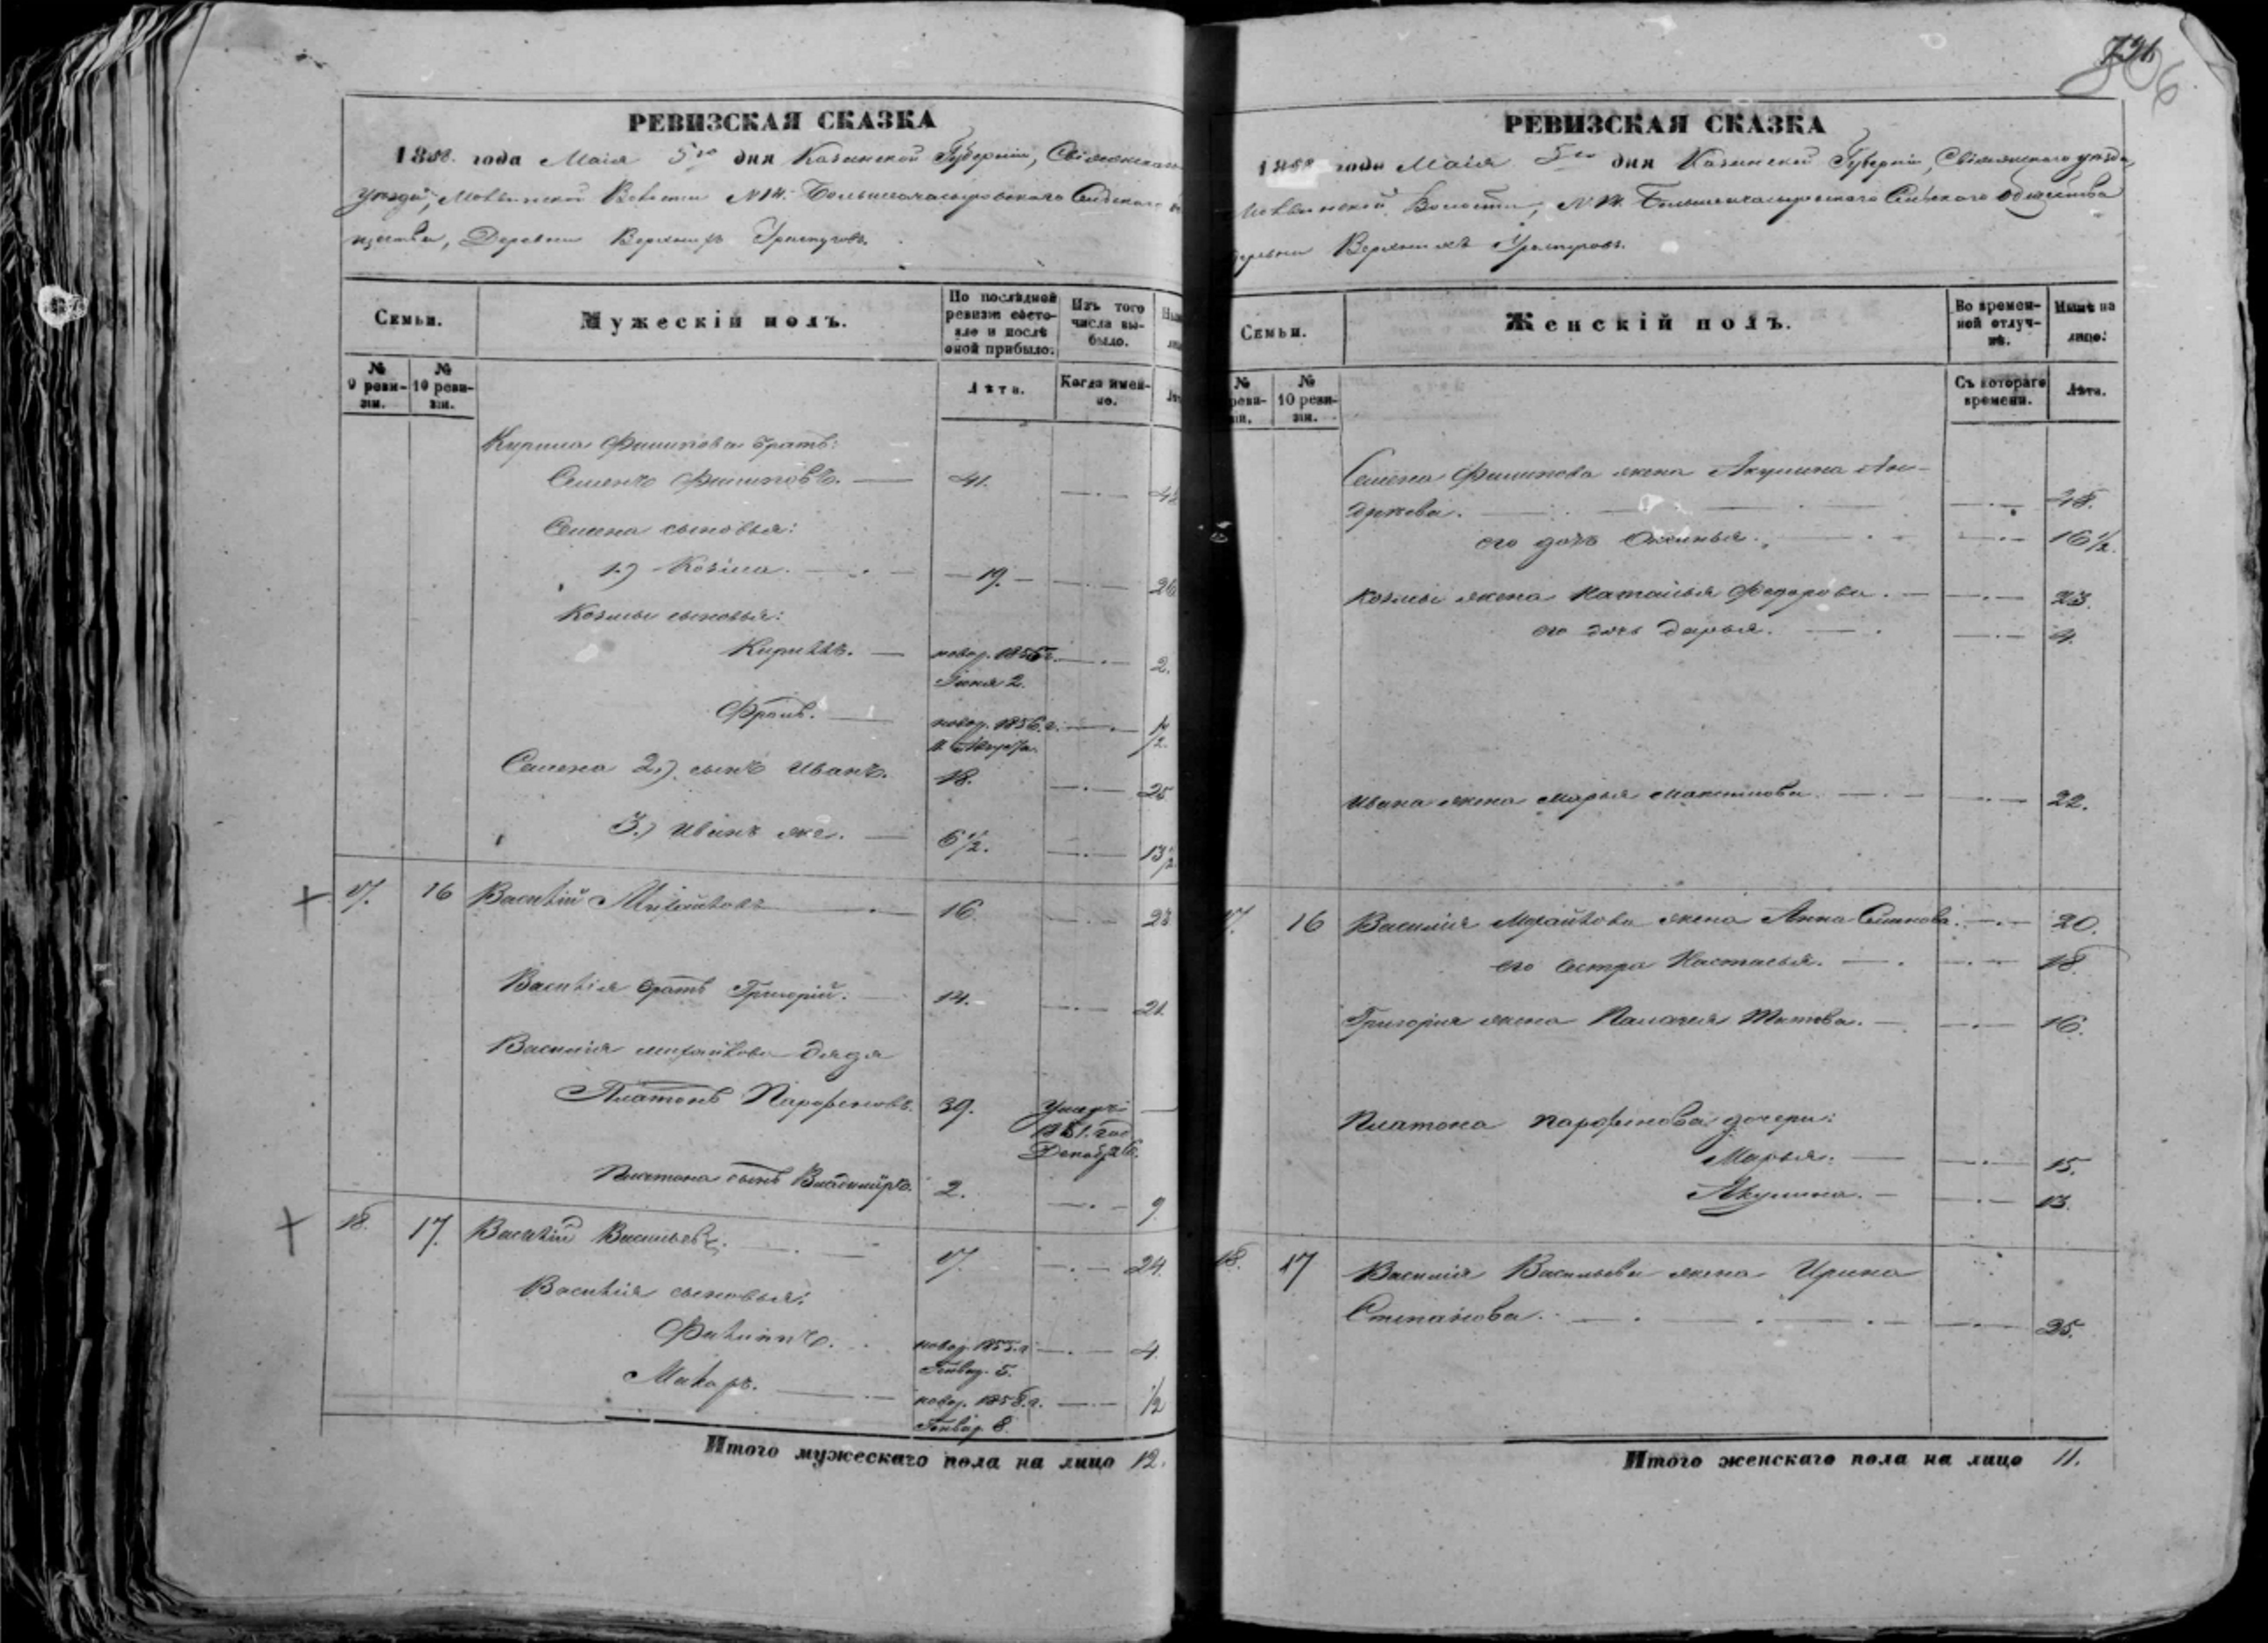 РЕВИЗСКАЯ СКАЗКА
1858. года Маія 5го дня Казанской Губерніи, Свіяжскаго
уѣзда, Волости №14. Сельскаго
щества, Деревни Верхнихъ
Семьи.
Мужескій полъ.
По послѣдней ревизіи состояло и послѣ оной прибыло.
Изъ того числа выбыло.
№ 9 ревизіи.
№ 10 ревизіи.
Лѣта.
Когда именно.
Кирила Филипова братъ:
Семенъ Филиповъ. 41. 48
Семена сыновья:
1.) Козма. 19. 26
Козмы сыновья:
Кирилъ. новор. 1856 г. 2.
Іюня 2.
Фролъ. новор. 1856 г. 1/2
Августа.
Семена 2.) сынъ Иванъ. 18. 25
3.) Иванъ же. 6 1/2. 13 1/2
17. 16 Василій Михайловъ 16. 23
Василія братъ Григорій. 14. 21.
Василія михайлова дядя
Платонъ Парфеновъ. 39. Умеръ
1851. год
Декабр 6.
Платона сынъ Владиміръ. 2. 9.
18. 17. Василій Васильевъ. 17. 24.
Василія сыновья:
Филиппъ. новор. 1855. г. 4.
Генвар. 5.
Макаръ. новор. 1858. г. 1/2
Генвар. 8.
Итого мужескаго пола на лицо 12.
721
806
РЕВИЗСКАЯ СКАЗКА
1858 года Маія 5го дня Казанской Губерніи, Свіяжскаго уѣзда,
Волости, №14. Сельскаго общества
деревни Верхнихъ
Семьи.
Женскій полъ.
Во временной отлучкѣ.
Нынѣ на лицо.
№ реви-
№ 10 ревизіи.
Съ котораго времени.
Лѣта.
Семена Филипова жена Акулина Ан-
дреева. 48.
его дочь 16 1/2.
Козмы жена Наталья Федорова. 23.
его дочь Дарья. 4.
Ивана жена Марья Максимова. 22.
17. 16 Василія Михайлова жена Анна Семенова. 20.
его сестра Настасья. 18
Григорія жена Палагея Титова. 16.
Платона Парфенова дочери:
Марья. 15.
Акулина. 13.
18. 17 Василія Васильева жена Ирина
Степанова. 25.
Итого женскаго пола на лицо 11.